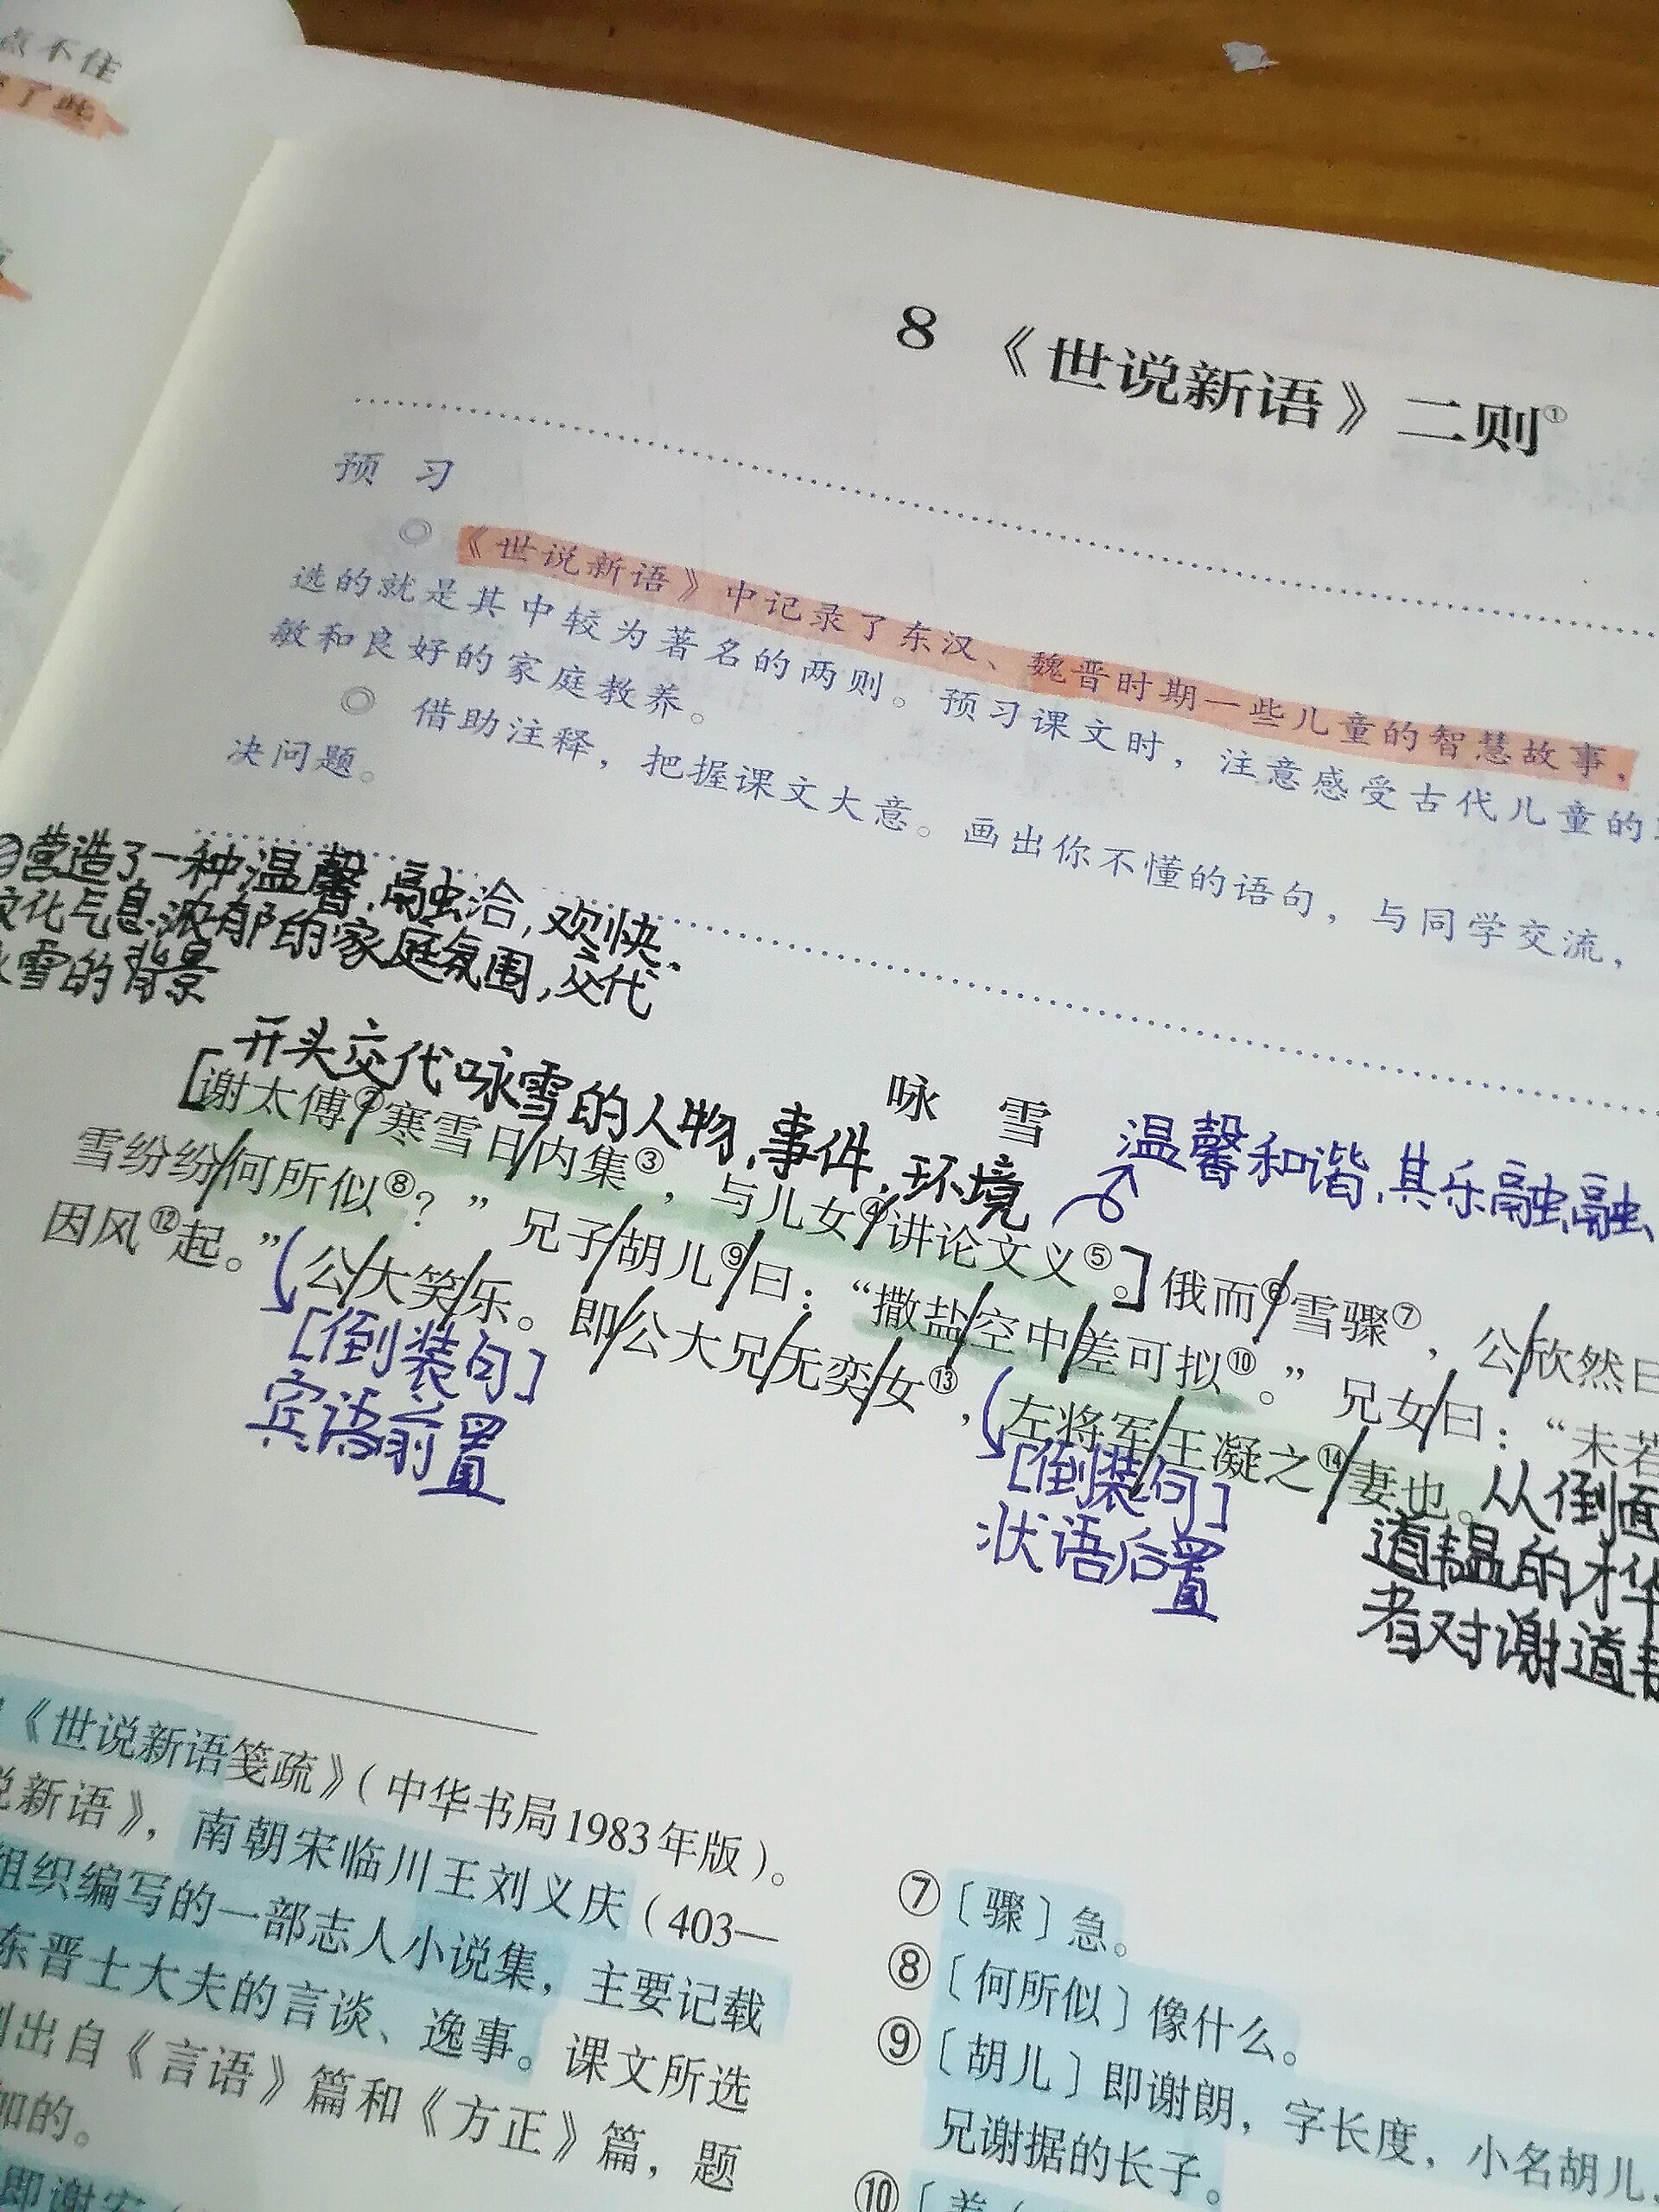 点不住
了些
8 《世说新语》二则①
预 习
◎ 《世说新语》中记录了东汉、魏晋时期一些儿童的智慧故事,
选的就是其中较为著名的两则。预习课文时,注意感受古代儿童的
敏和良好的家庭教养。
◎ 借助注释,把握课文大意。画出你不懂的语句,与同学交流,
决问题。
②营造了一种温馨,融洽,欢快,
文化气息浓郁的家庭氛围,交代
咏雪的背景
开头交代咏雪的人物,事件,环境
咏 雪
温馨和谐,其乐融融
[谢太傅②/寒雪日/内集③,与儿女④/讲论文义⑤。]俄而⑥/雪骤⑦,公/欣然曰
雪纷纷/何所似⑧?”兄子/胡儿⑨/曰:“撒盐/空中/差可拟⑩。”兄女/曰:“未若
因风⑫起。”公/大笑/乐。即/公大兄/无奕/女⑬,左将军/王凝之⑭/妻也。
[倒装句]
宾语前置
[倒装句]
状语后置
从侧面
道韫的才华
者对谢道韫
《世说新语笺疏》(中华书局1983年版)。
说新语》,南朝宋临川王刘义庆(403—
组织编写的一部志人小说集,主要记载
东晋士大夫的言谈、逸事。课文所选
出自《言语》篇和《方正》篇,题
加的。
即谢安
⑦〔骤〕急。
⑧〔何所似〕像什么。
⑨〔胡儿〕即谢朗,字长度,小名胡儿,
兄谢据的长子。
⑩〔差